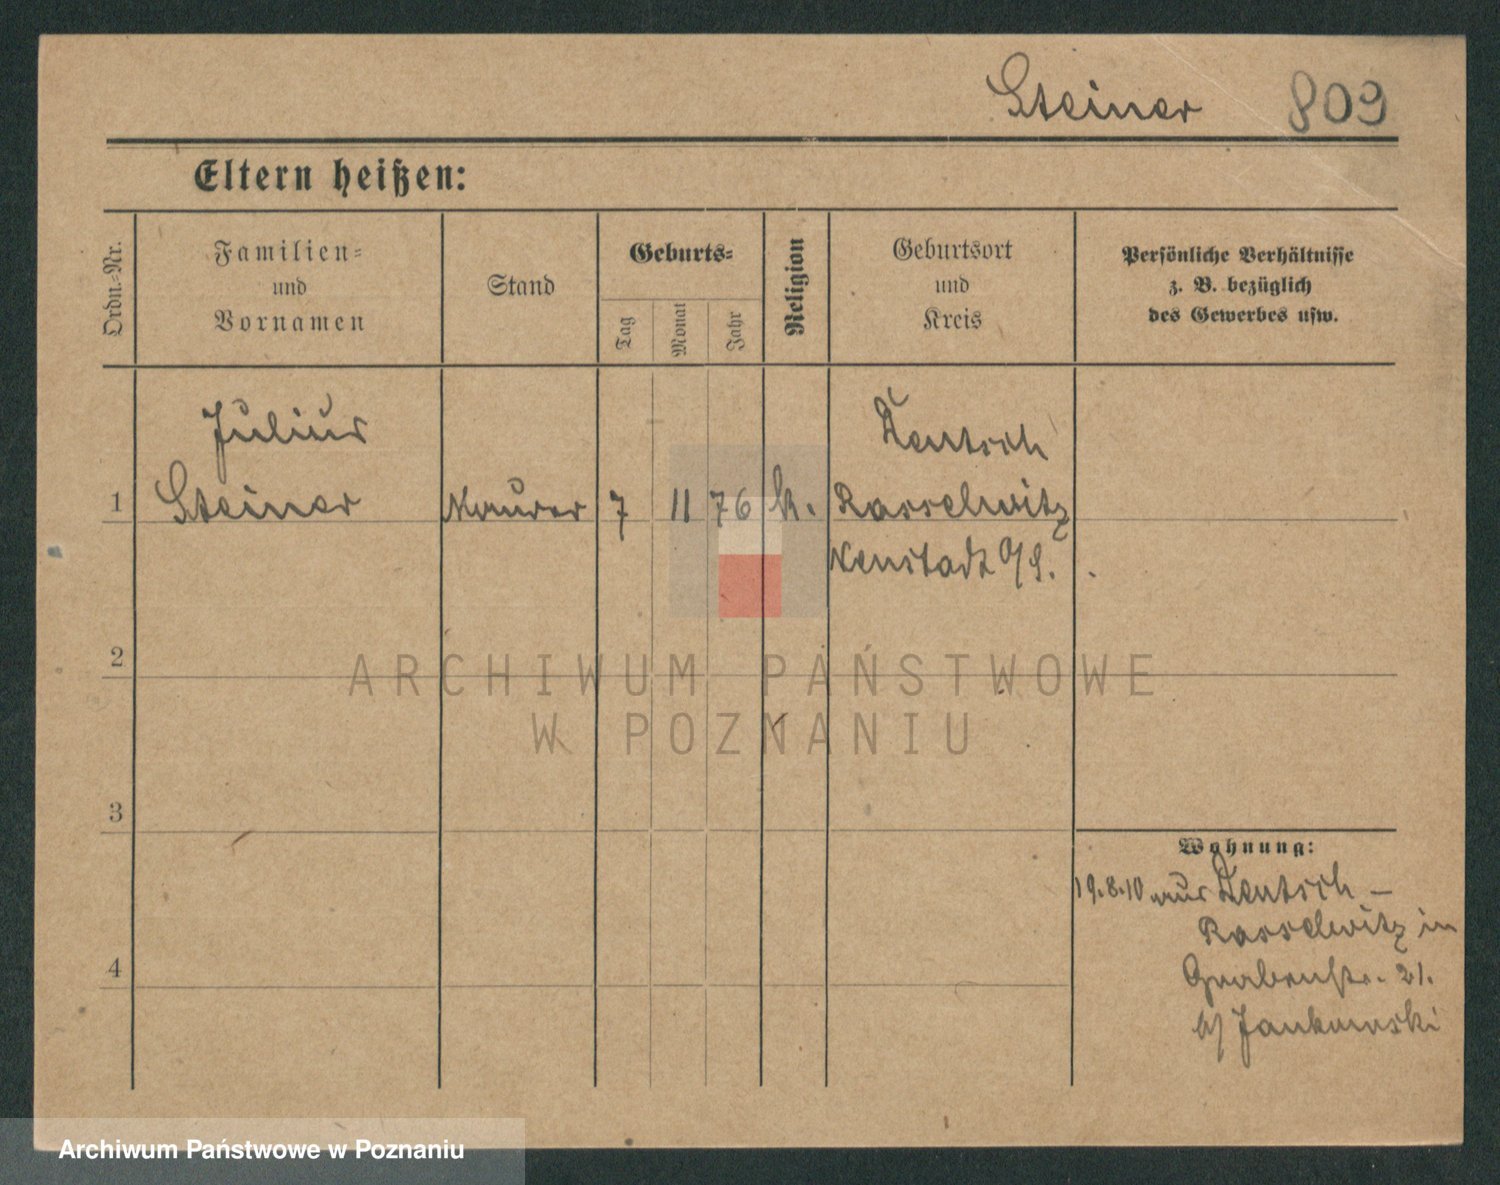 Steiner 809
Eltern heißen:
Ordn.-Nr.
Familien-
und
Vornamen
Stand
Geburts-
Tag
Monat
Jahr
Religion
Geburtsort
und
Kreis
Persönliche Verhältnisse
z. B. bezüglich
des Gewerbes usw.
Julius
Deutsch
1 Steiner Maurer 7 11 76 k. Rasselwitz
Neustadt O/S.
2
ARCHIWUM PAŃSTWOWE
W POZNANIU
3
Wohnung:
19.8.10 aus Deutsch-
Rasselwitz in
4 Grabenstr. 21.
b/ Jankowski
Archiwum Państwowe w Poznaniu